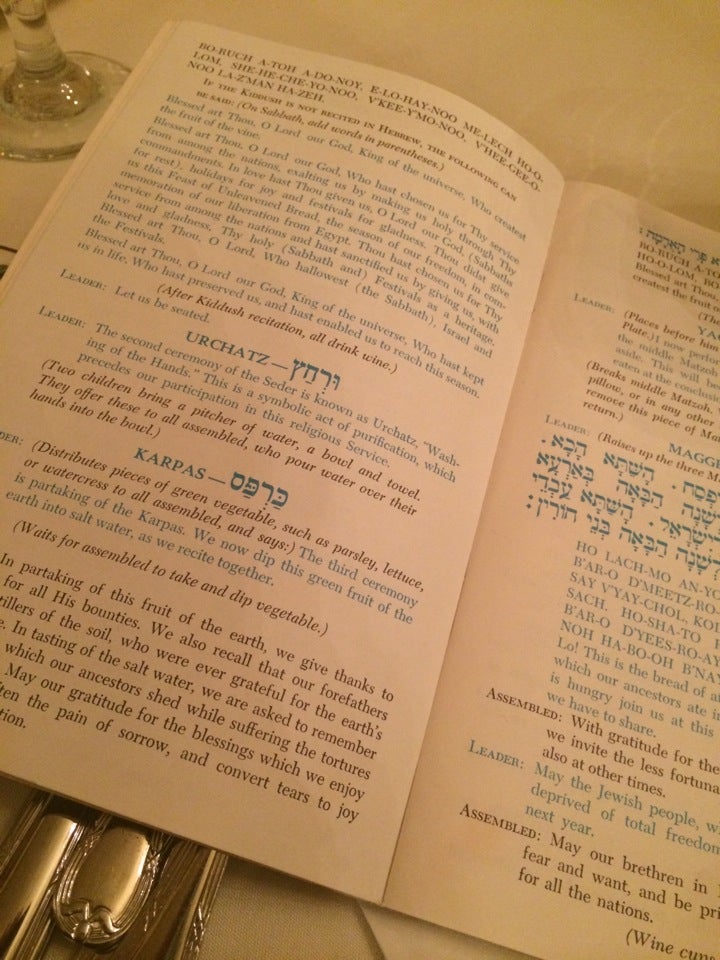 BO-RUCH A-TOH A-DO-NOY, E-LO-HAY-NOO ME-LECH HO-O-
LOM, SHE-HE-CHE-YO-NOO, V'KEE-Y'MO-NOO, V'HEE-GEE-O-
NOO LA-Z'MAN HA-ZEH.
IF THE KIDDUSH IS NOT RECITED IN HEBREW, THE FOLLOWING CAN
BE SAID: (On Sabbath, add words in parentheses.)
Blessed art Thou, O Lord our God, King of the universe, Who createst
the fruit of the vine.
Blessed art Thou, O Lord our God, Who hast chosen us for Thy service
from among the nations, exalting us by making us holy through Thy
commandments. In love hast Thou given us, O Lord our God, (Sabbaths
for rest), holidays for joy and festivals for gladness. Thou didst give
us this Feast of Unleavened Bread, the season of our freedom, in com-
memoration of our liberation from Egypt. Thou hast chosen us for Thy
service from among the nations and hast sanctified us by giving us, with
love and gladness, Thy holy (Sabbath and) Festivals as a heritage.
Blessed art Thou, O Lord, Who hallowest (the Sabbath), Israel and
the Festivals.
Blessed art Thou, O Lord our God, King of the universe, Who hast kept
us in life, Who hast preserved us, and hast enabled us to reach this season.
(After Kiddush recitation, all drink wine.)
LEADER: Let us be seated.
URCHATZ — וּרְחַץ
LEADER: The second ceremony of the Seder is known as Urchatz, "Wash-
ing of the Hands." This is a symbolic act of purification, which
precedes our participation in this religious Service.
(Two children bring a pitcher of water, a bowl and towel.
They offer these to all assembled, who pour water over their
hands into the bowl.)
KARPAS — כַּרְפַּס
(Distributes pieces of green vegetable, such as parsley, lettuce,
or watercress to all assembled, and says:) The third ceremony
is partaking of the Karpas. We now dip this green fruit of the
earth into salt water, as we recite together.
(Waits for assembled to take and dip vegetable.)
In partaking of this fruit of the earth, we give thanks to
for all His bounties. We also recall that our forefathers
tillers of the soil, who were ever grateful for the earth's
In tasting of the salt water, we are asked to remember
which our ancestors shed while suffering the tortures
May our gratitude for the blessings which we enjoy
the pain of sorrow, and convert tears to joy
פְּרִי הָאֲדָמָה
BO-RUCH A-TO
HO-O-LOM, BO
Blessed art Thou
createst the fruit o
LEADER: (Places before him
Plate.) I now
the middle Matzoh
aside. This will be
eaten at the conclusi
(Breaks middle Matzoh.
pillow, or in any other
remove this piece of Ma
return.)
MAGG
LEADER: (Raises up the three M
הָשַׁתָּא הָכָא
הַבָּאָה בְּאַרְעָא
הָשַׁתָּא עַבְדֵי
הַבָּאָה בְּנֵי חוֹרִין
HO LACH-MO AN-YO
B'AR-O D'MEETZ-RO
SAY V'YAY-CHOL, KOL
SACH. HO-SHA-TO H
B'AR-O D'YEES-RO-AY
NOH HA-BO-OH B'NAY
Lo! This is the bread of af
which our ancestors ate in
is hungry join us at this
we have to share.
ASSEMBLED: With gratitude for the
we invite the less fortuna
also at other times.
LEADER: May the Jewish people, w
deprived of total freedom
next year.
ASSEMBLED: May our brethren in
fear and want, and be pri
for all the nations.
(Wine cups